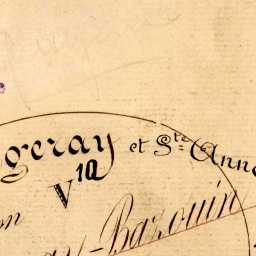 geray et Ste Ann
Vin
on
ay-Bazouin